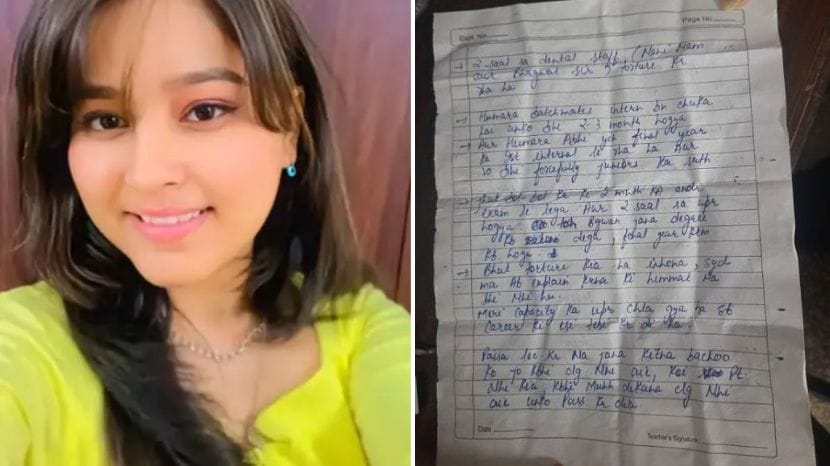 Expt. No.
Page No.
→ 2 saal sa dental staff (Mam
aur Bhagwat sir ) torture kr
rha ha
→ Humara batchmates intern bn chuka
hai unko bhi 2-3 month hogya
→ Aur Humara Abhi yeh final year
ka 1st internal le rha ha Aur
vo bhi forcefully juniors ka sath
→ jhut bol bol kr ki 2 month ka andr
exam le lega Aur 2 saal sa upr
hogya. Bgwan jana degree
kb dega, final year km
kb hoga.
→ Bhut torture kia ha inhona, syd
ma Ab explain krna ki himmat na
the Nhi hu.
Meri Capacity ka upr chla gya ha sb
Career ki
Paisa lee kr Na jana kitna bachoo
ko jo kbhi clg Nhi aie, koi Pt.
Nhi kia kbhi Muhh dikhana clg Nhi
aie unko Pass kr dia
Date
Teacher's Signature